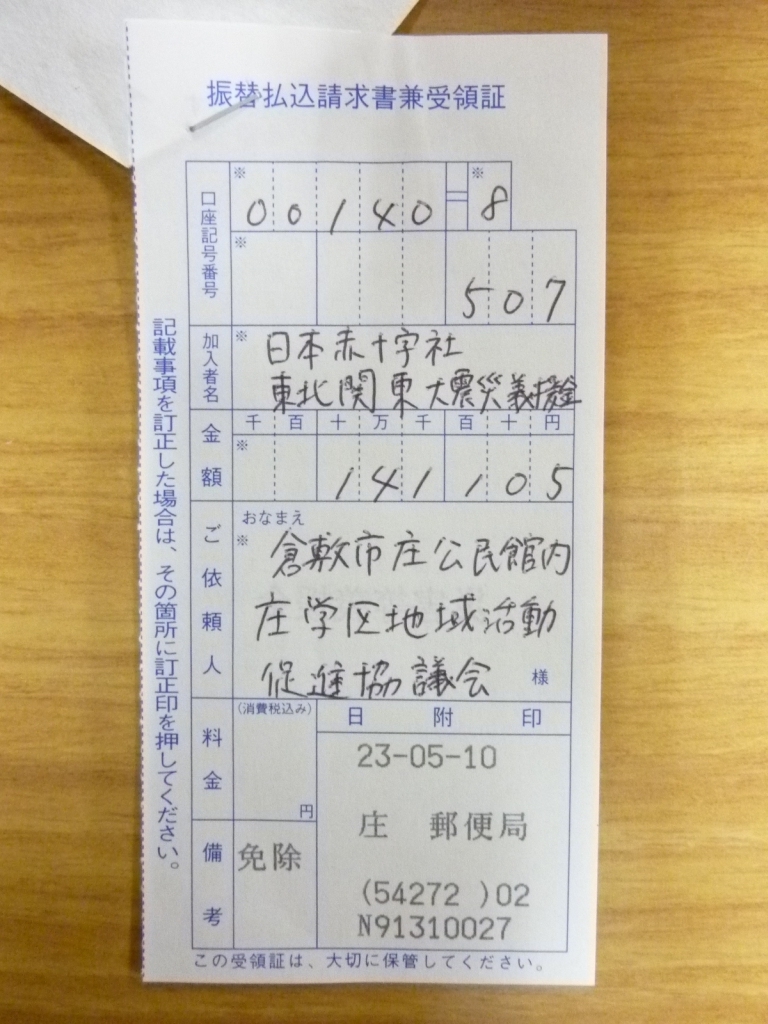 振替払込請求書兼受領証
口座記号番号
※ ※
00140=8
※
507
加入者名
※
日本赤十字社
東北関東大震災義援金
金額
千百十万千百十円
※
141105
ご依頼人
おなまえ
※
倉敷市庄公民館内
庄学区地域活動
促進協議会 様
料金
(消費税込み)
円
備考
免除
日附印
23-05-10
庄 郵便局
(54272 )02
N91310027
記載事項を訂正した場合は、その箇所に訂正印を押してください。
この受領証は、大切に保管してください。